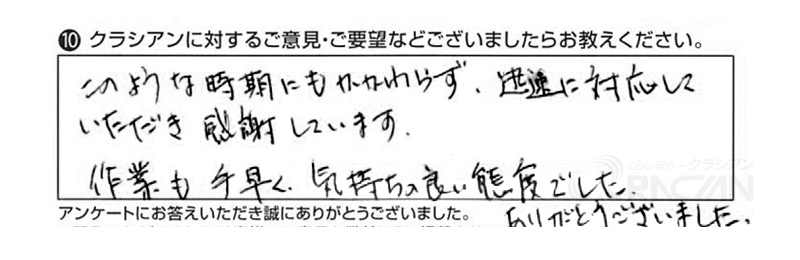 ⑩ クラシアンに対するご意見・ご要望などございましたらお教えください。
このような時期にもかかわらず、迅速に対応して
いただき感謝しています。
作業も手早く、気持ちの良い態度でした。
くらし安心クラシアン
QRACIAN
アンケートにお答えいただき誠にありがとうございました。
ありがとうございました。